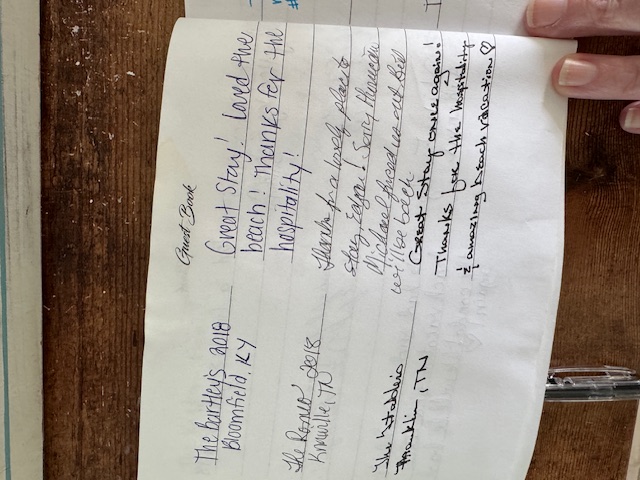 Guest Book
The Bartley's 2018
Bloomfield, KY
Great Stay! Loved the
beach! Thanks for the
hospitality!
The 2018
Knoxville, TN
Thanks for a lovely place to
stay, ! Sorry Hurricane
Michael forced us out But
we'll be back
The
Franklin, TN
Great Stay once again!
Thanks for the hospitality
& amazing beach vacation ♡